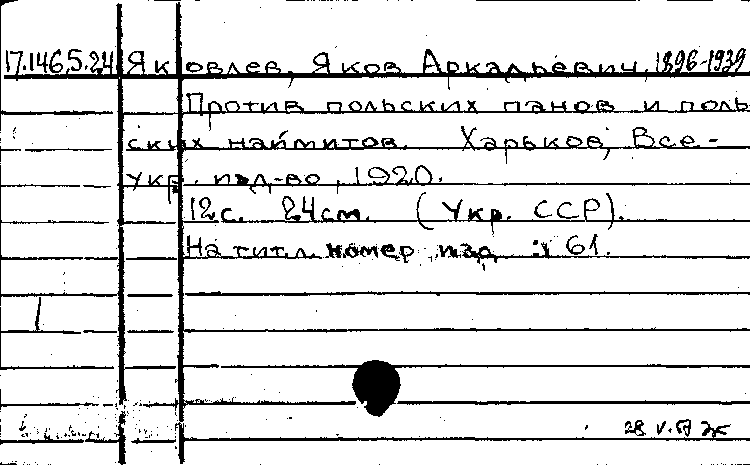 17.146.5.24 Яковлев, Яков Аркадьевич, 1896-1939
Против польских панов и поль
ских наймитов. Харьков, Все-
укр. изд-во, 1920.
12с. 24см. (Укр. ССР).
На титл. номер изд : 61.
28 V.